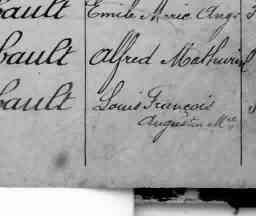 bault Emile Marie Ang.
bault Alfred Mathurin
bault Louis François
Augustin Mie